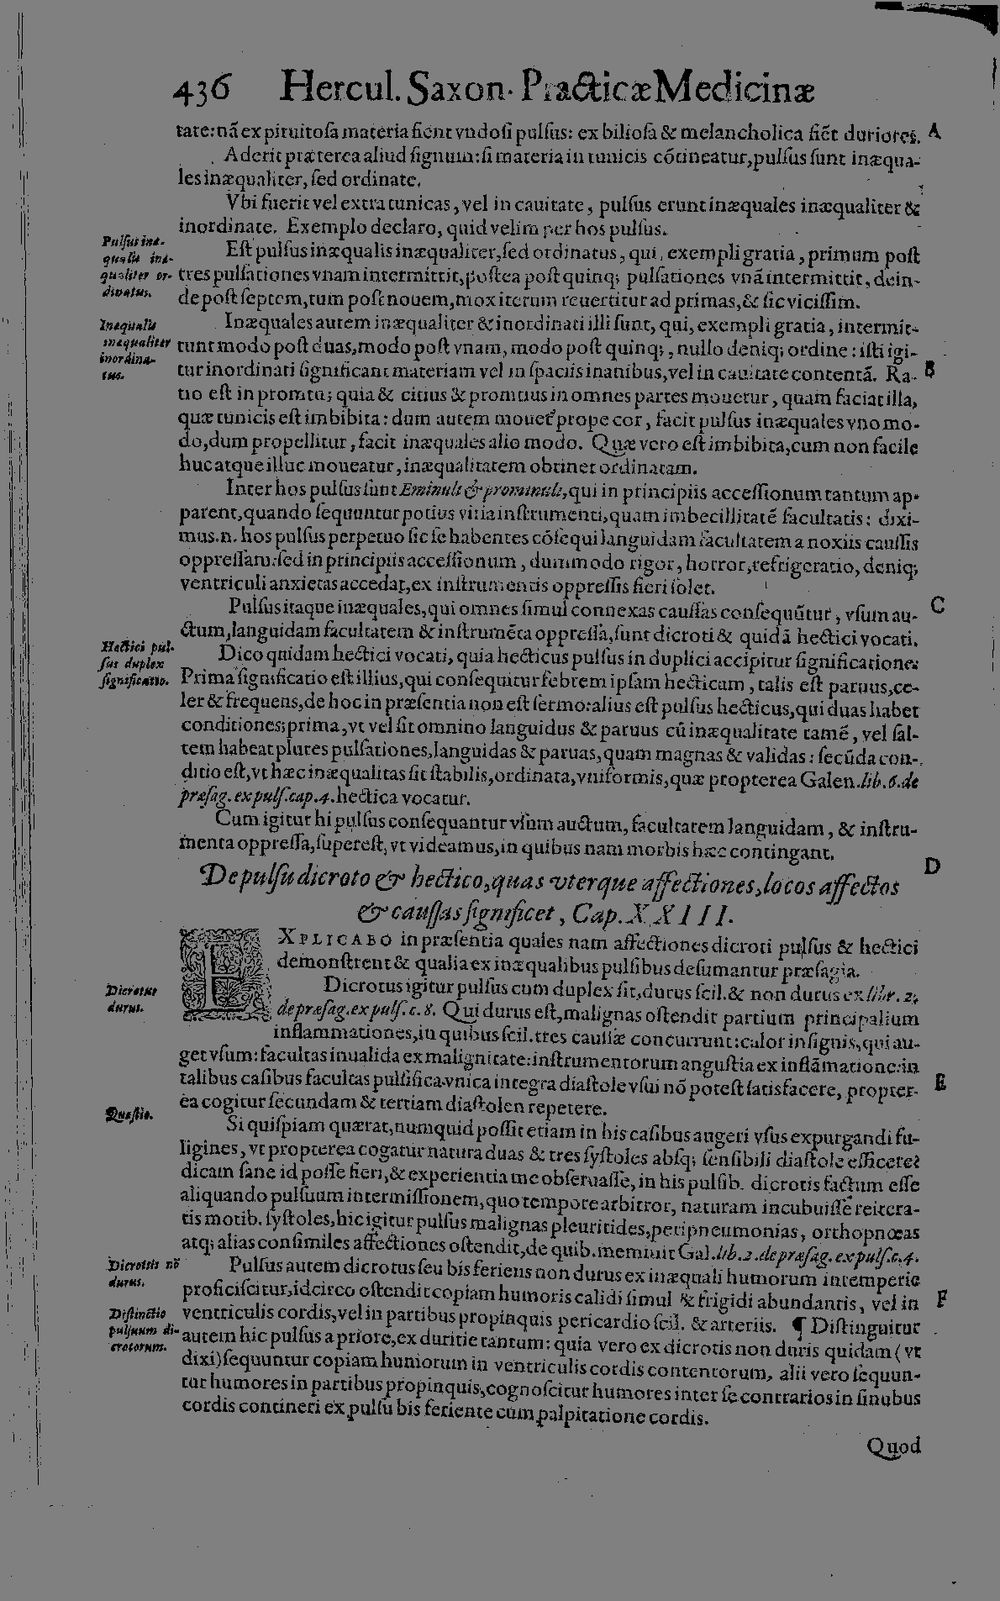 436 Hercul. Saxon. Practicæ Medicinæ
tate: nã ex pituitoſa materia fient vndoſi pulſus: ex bilioſa & melancholica fiẽt duriores. A
Aderit præterea aliud ſignum: ſi materia in tunicis cõtineatur, pulſus ſunt inæqua-
les inæqualiter, ſed ordinate.
Vbi fuerit vel extra tunicas, vel in cauitate, pulſus erunt inæquales inæqualiter &
inordinate. Exemplo declaro, quid velim per hos pulſus.
Pulſus inæ-
qualis inæ-
qualiter or-
dinatus.
Eſt pulſus inæqualis inæqualiter, ſed ordinatus, qui, exempli gratia, primum poſt
tres pulſationes vnam intermittit, poſtea poſt quinq; pulſationes vnã intermittit, dein-
de poſt ſeptem, tum poſt nouem, mox iterum reuertitur ad primas, & ſic viciſſim.
Inæqualis
inæqualiter
inordina-
tus.
Inæquales autem inæqualiter & inordinati illi ſunt, qui, exempli gratia, intermit-
tunt modo poſt duas, modo poſt vnam, modo poſt quinq;, nullo deniq; ordine: iſti igi-
tur inordinati ſignificant materiam vel in ſpaciis inanibus, vel in cauitate contentã. Ra- B
tio eſt in promtu; quia & citius & promtius in omnes partes mouetur, quam faciat illa,
quæ tunicis eſt imbibita: dum autem mouet prope cor, facit pulſus inæquales vno mo-
do, dum propellitur, facit inæquales alio modo. Quæ vero eſt imbibita, cum non facile
huc atque illuc moueatur, inæqualitatem obtinet ordinatam.
Inter hos pulſus ſunt Eminuli & prominuli, qui in principiis acceſſionum tantum ap-
parent, quando ſequuntur potius vitia inſtrumenti, quam imbecillitatẽ facultatis: dixi-
mus.n. hos pulſus perpetuo ſic ſe habentes cõſequi languidam facultatem a noxiis cauſſis
oppreſſam: ſed in principiis acceſſionum, dummodo rigor, horror, refrigeratio, deniq;
ventriculi anxietas accedat, ex inſtrumentis oppreſſis fieri ſolet.
Pulſus itaque inæquales, qui omnes ſimul connexas cauſſas conſequũtur, vſum au- C
ctum, languidam facultatem & inſtrumẽta oppreſſa, ſunt dicroti & quidã hectici vocati.
Hectici pul-
ſus duplex
ſignificatio.
Dico quidam hectici vocati, quia hecticus pulſus in duplici accipitur ſignificatione:
Prima ſignificatio eſt illius, qui conſequitur febrem ipſam hecticam, talis eſt paruus, ce-
ler & frequens, de hoc in præſentia non eſt ſermo: alius eſt pulſus hecticus, qui duas habet
conditiones; prima, vt vel ſit omnino languidus & paruus cũ inæqualitate tamẽ, vel ſal-
tem habeat plures pulſationes, languidas & paruas, quam magnas & validas: ſecũda con-
ditio eſt, vt hæc inæqualitas ſit ſtabilis, ordinata, vniformis, quæ propterea Galen. lib. 6. de
præſag. ex pulſ. cap. 4. hectica vocatur.
Cum igitur hi pulſus conſequantur vſum auctum, facultatem languidam, & inſtru-
menta oppreſſa, ſupereſt, vt videamus, in quibus nam morbis hæc contingant.
De pulſu dicroto & hectico, quas vterque affectiones, locos affectos D
& cauſſas ſignificet, Cap. XXIII.
EXPLICABO in præſentia quales nam affectiones dicroti pulſus & hectici
demonſtrent & qualia ex inæqualibus pulſibus deſumantur præſagia.
Dicrotus
durus.
Dicrotus igitur pulſus cum duplex ſit, durus ſcil. & non durus ex libr. 2.
de præſag. ex pulſ. c. 8. Qui durus eſt, malignas oſtendit partium principalium
inflammationes, in quibus ſcil. tres cauſſæ concurrunt: calor inſignis, qui au-
get vſum: facultas inualida ex malignitate: inſtrumentorum anguſtia ex inflãmatione: in
talibus caſibus facultas pulſifica vnica integra diaſtole vſui nõ poteſt ſatisfacere, propter- E
ea cogitur ſecundam & tertiam diaſtolen repetere.
Quæſtio.
Si quiſpiam quærat, numquid poſſit etiam in his caſibus augeri vſus expurgandi fu-
ligines, vt propterea cogatur natura duas & tres ſyſtoles abſq; ſenſibili diaſtole efficere?
dicam ſane id poſſe fieri, & experientia me obſeruaſſe, in his pulſib. dicrotis factum eſſe
aliquando pulſuum intermiſſionem, quo tempore arbitror, naturam incubuiſſe reitera-
tis motib. ſyſtoles, hic igitur pulſus malignas pleuritides, peripneumonias, orthopnœas
atq; alias conſimiles affectiones oſtendit, de quib. meminit Gal. lib. 2. de præſag. ex pulſ. c. 4.
Dicrotus nõ
durus.
Pulſus autem dicrotus ſeu bis feriens non durus ex inæquali humorum intemperie
proficiſcitur, idcirco oſtendit copiam humoris calidi ſimul & frigidi abundantis, vel in F
Diſtinctio
pulſuum di-
crotorum.
ventriculis cordis, vel in partibus propinquis pericardio ſcil. & arteriis. ¶ Diſtinguitur
autem hic pulſus a priore, ex duritie tantum: quia vero ex dicrotis non duris quidam (vt
dixi) ſequuntur copiam humorum in ventriculis cordis contentorum, alii vero ſequun-
tur humores in partibus propinquis, cognoſcitur humores inter ſe contrarios in ſinubus
cordis contineri ex pulſu bis feriente cum palpitatione cordis.
Quod